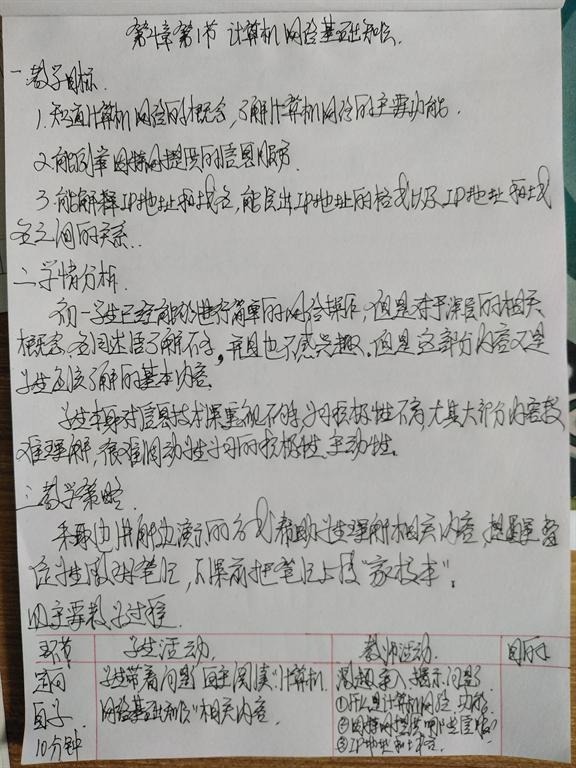 第4章第1节 计算机网络基础知识.
一.教学目标
1.知道计算机网络的概念,了解计算机网络的主要功能.
2.能列举因特网提供的信息服务.
3.能解释IP地址和域名,能说出IP地址的格式以及IP地址和域
名之间的关系.
二.学情分析.
初一学生已经能够进行简单的网络操作,但是对于深层的相关
概念、名词术语了解不多,并且也不感兴趣.但是这部分内容又是
学生应该了解的基本内容.
学生本身对信息技术课重视不够,学习积极性不高,尤其大部分内容较
难理解,很难调动学生学习的积极性、主动性.
三.教学策略
采取边讲解边演示的方式帮助学生理解相关内容,提醒
学生及时笔记,下课前把笔记上传"家校本".
四.主要教学过程
环节 学生活动. 教师活动. 目的
定向
自学
10分钟
学生带着问题自主阅读"计算机
网络基础知识"相关内容.
导入,揭示问题
①什么是计算机网络、功能
②因特网提供哪些信息服务?
③IP地址和域名.